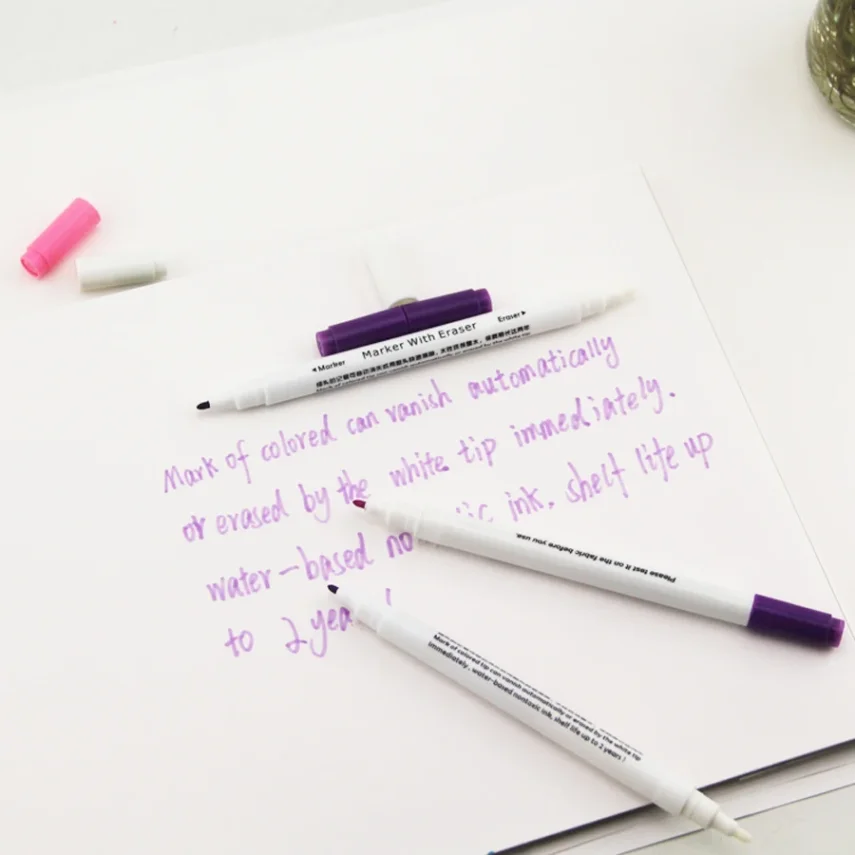 Marker With Eraser
◀Marker
Eraser▶
Mark of colored can vanish automatically
or erased by the white tip immediately.
water-based no ic ink, shelf life up
to 2 yea !
Please test it on the fabric before you use.
Mark of colored tip can vanish automatically or erased by the white tip
immediately, water-based nontoxic ink, shelf life up to 2 years !